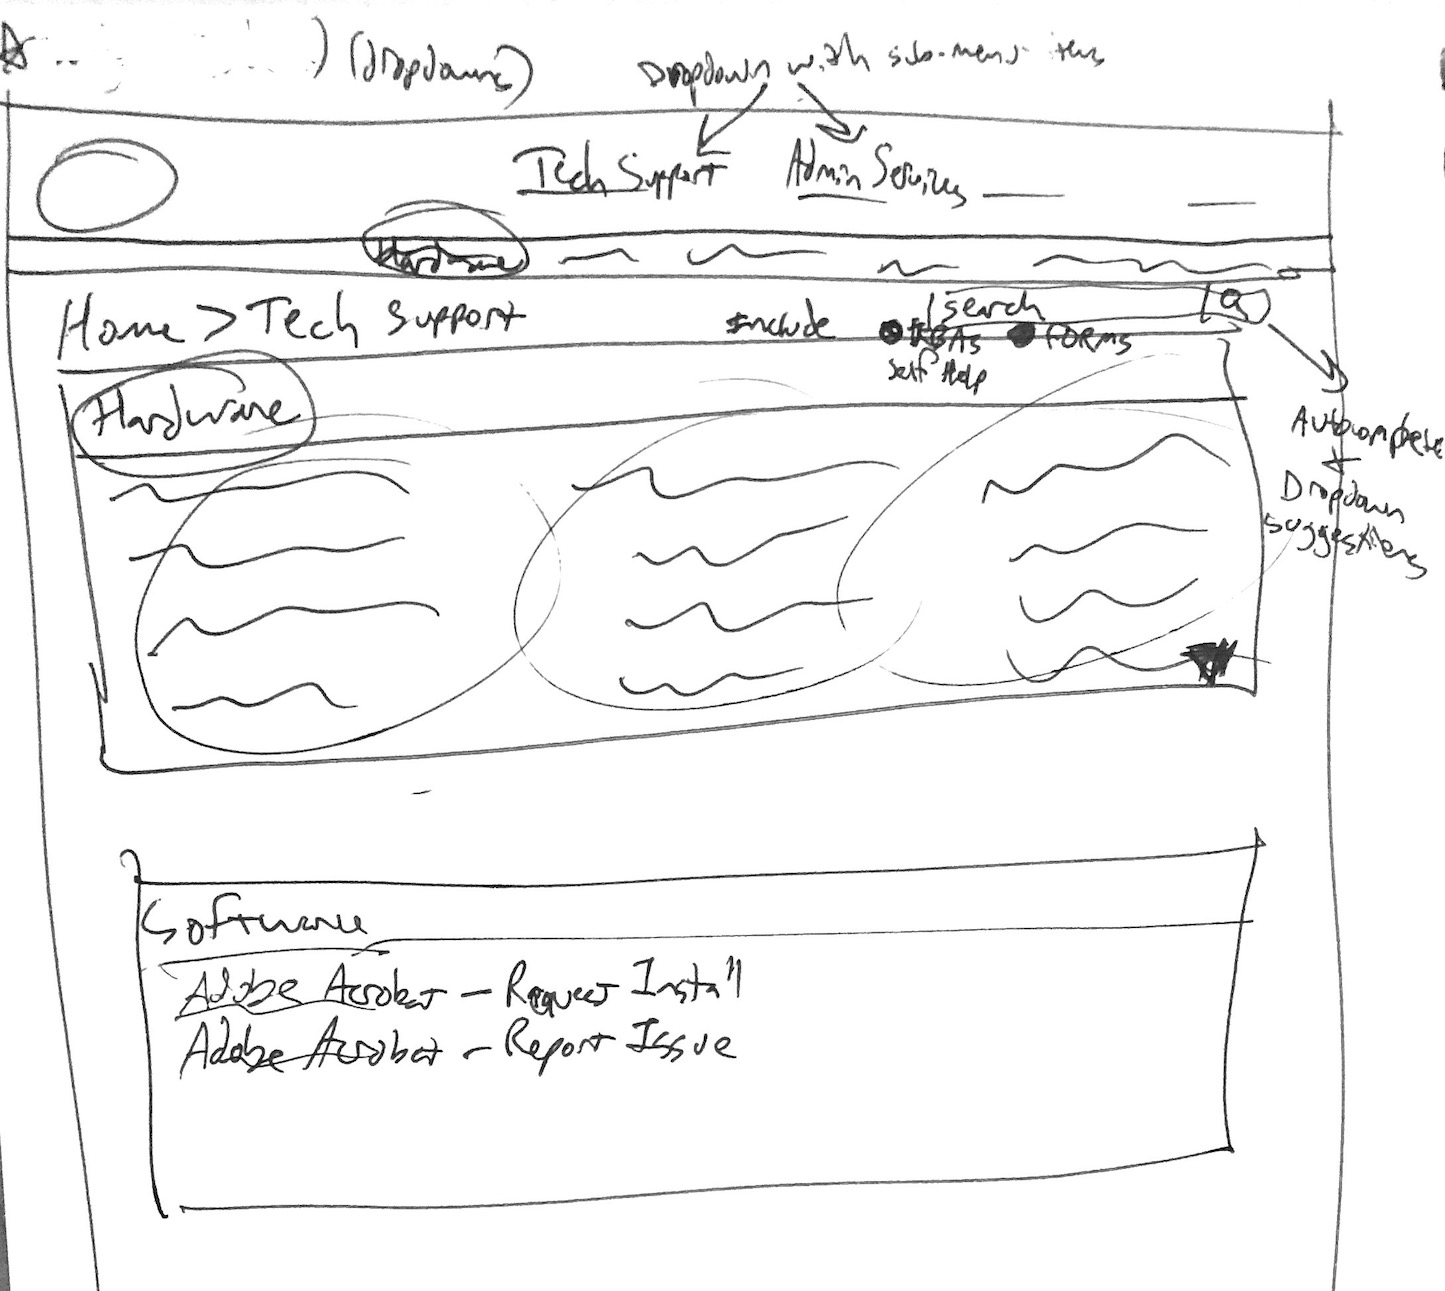 (dropdowns)
Dropdown with sub-menu items
Tech Support
Admin Services
Hardware
Home > Tech Support
search
Include
KBAs
FORMS
Self Help
Hardware
Autocomplete
+
Dropdown
suggestions
Software
Adobe Acrobat - Request Install
Adobe Acrobat - Report Issue